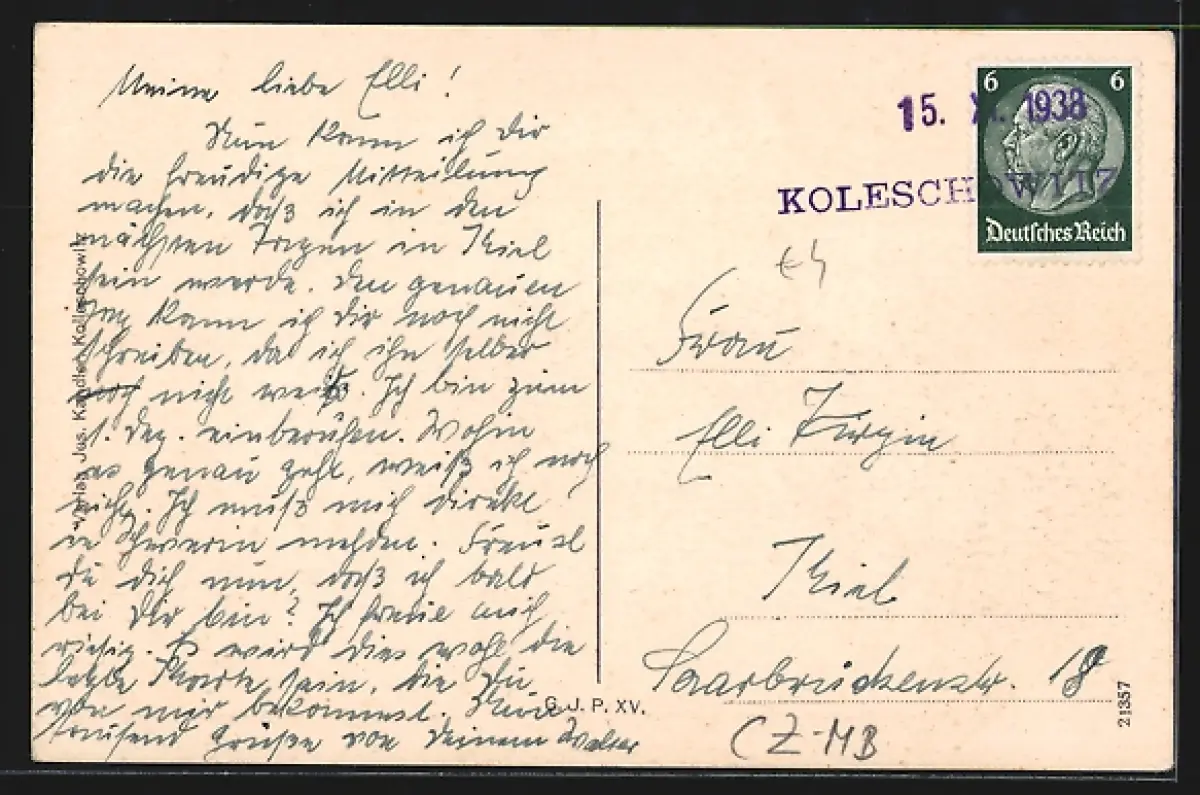 Meine liebe Elli!
Nun kann ich Dir
die freudige Mitteilung
machen, daß ich in den
nächsten Tagen in Kiel
sein werde. Den genauen
Tag kann ich Dir noch nicht
schreiben, da ich ihn selber
noch nicht weiß. Ich bin zum
1. Dez. einberufen. Wohin
es genau geht, weiß ich noch
nicht. Ich muß mich direkt
in Schwerin melden. Freust
Du Dich nun, daß ich bald
bei Dir bin? Ich freue mich
riesig. Es wird dies wohl die
letzte Karte sein, die Du
von mir bekommst. Nun
tausend Grüße von Deinem Walter
Verlag Jus. Kolleschowitz
G. J. P. XV.
15. XI. 1938
KOLESCHOWITZ
6 6
Deutsches Reich
Frau
Elli
Kiel
Saarbrückenstr. 18
CZ-MB
21357